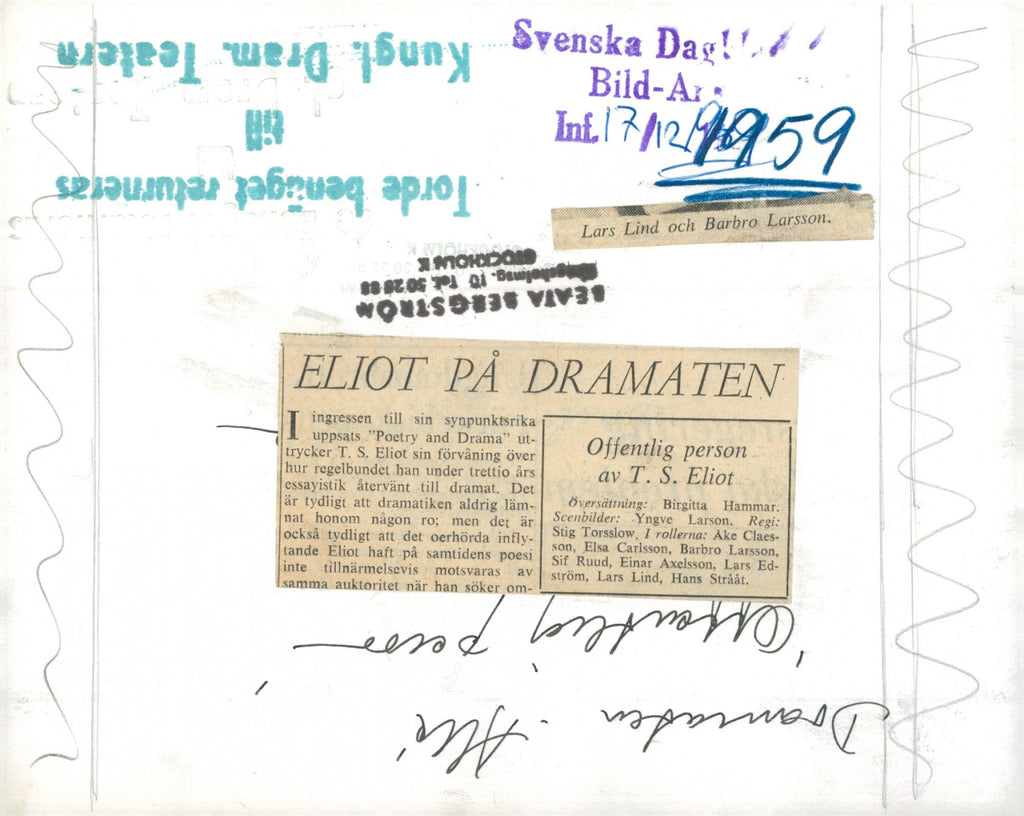 Svenska Dag
Bild-Ar
Inf. 17/12 1959
Lars Lind och Barbro Larsson.
Torde benäget returneras
till
Kungl. Dram. Teatern
BEATA BERGSTRÖM
10 Tel. 50 28 88
STOCKHOLM K
ELIOT PÅ DRAMATEN
I ingressen till sin synpunktsrika
uppsats "Poetry and Drama" ut-
trycker T. S. Eliot sin förvåning över
hur regelbundet han under trettio års
essayistik återvänt till dramat. Det
är tydligt att dramatiken aldrig läm-
nat honom någon ro; men det är
också tydligt att det oerhörda infly-
tande Eliot haft på samtidens poesi
inte tillnärmelsevis motsvaras av
samma auktoritet när han söker om-
Offentlig person
av T. S. Eliot
Översättning: Birgitta Hammar.
Scenbilder: Yngve Larson. Regi:
Stig Torsslow. I rollerna: Åke Claes-
son, Elsa Carlsson, Barbro Larsson,
Sif Ruud, Einar Axelsson, Lars Ed-
ström, Lars Lind, Hans Strååt.
Dramaten
"Offentlig person"